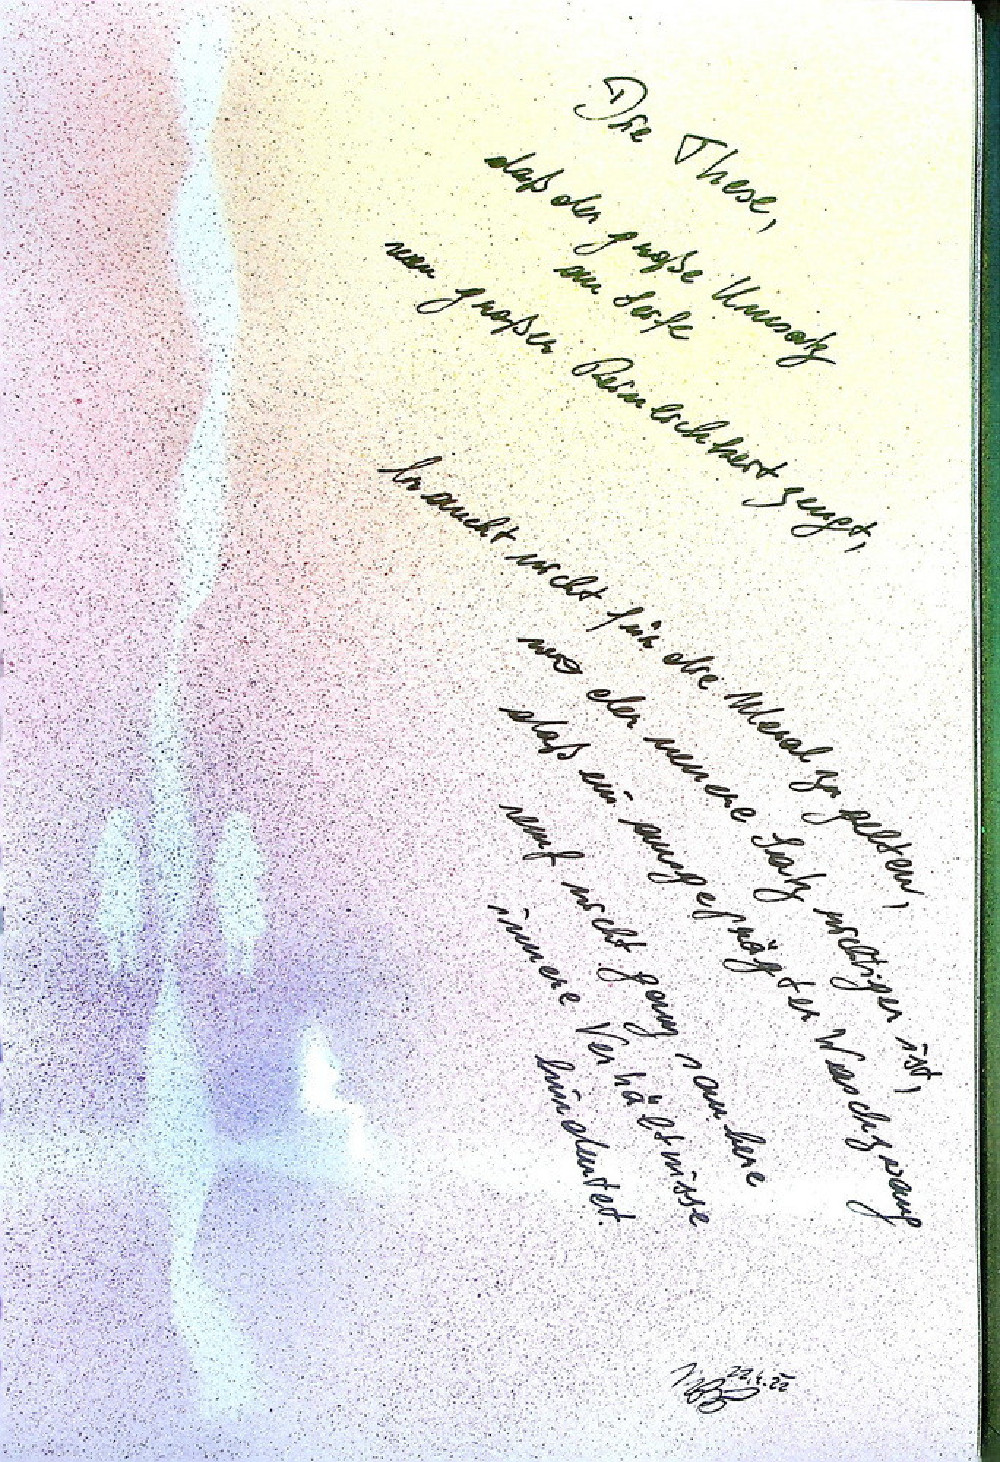 Die These,
daß der große Umsatz
an Seife
von großer Reinlichkeit zeugt,
braucht nicht für die Moral zu gelten,
wo der neuere Satz richtiger ist,
daß ein ausgeprägter Waschzwang
auf nicht ganz saubere
innere Verhältnisse
hindeutet.
22.4.22